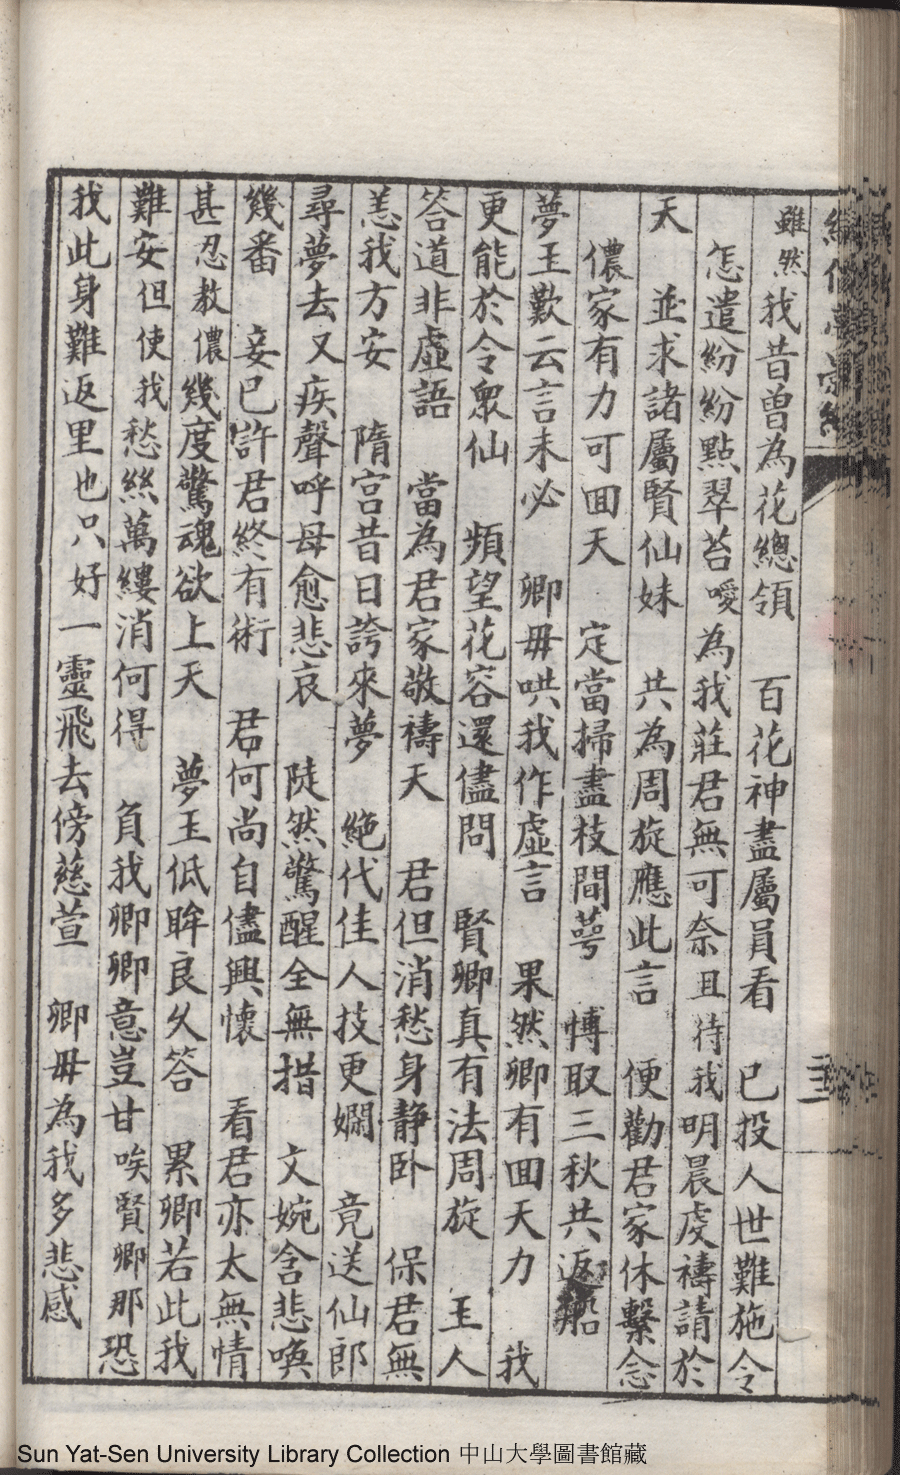 雖然我昔曾為花總領　百花神盡屬員看　已投人世難施令
怎遣紛紛點翠苔噯為我莊君無可奈且待我明晨虔禱請於
天　並求諸屬賢仙妹　共為周旋應此言　便勸君家休繫念
儂家有力可囬天　定當掃盡枝間萼　博取三秋共返船
夢玉歎云言未必　卿毋哄我作虛言　果然卿有囬天力　我
更能於令衆仙　頻望花容還儘問　賢卿真有法周旋　玉人
答道非虛語　當為君家敬禱天　君但消愁身静卧　保君無
恙我方安　隋宫昔日誇來夢　絶代佳人技更嫻　竟送仙郎
尋夢去又疾聲呼母愈悲哀　陡然驚醒全無措　文婉含悲喚
幾番　妾已許君終有術　君何尚自儘興懷　看君亦太無情
甚忍教儂幾度驚魂欲上天　夢玉低眸良久答　累卿若此我
難安但使我愁絲萬縷消何得　負我卿卿意豈甘唉賢卿那恐
我此身難返里也只好一靈飛去傍慈萱　卿毋為我多悲感
Sun Yat-Sen University Library Collection 中山大學圖書館藏